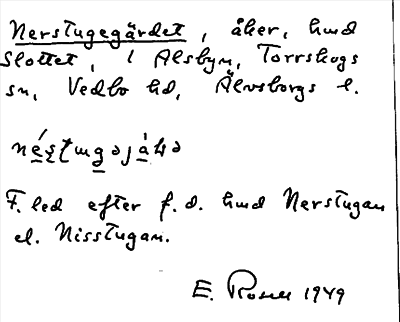 Nerstugegärdet, åker, hmd
Slottet, i Alsbyn, Torrskogs
sn, Vedbo hd, Älvsborgs l.
F. led efter f.d. hmd Nerstugan
el. Nisstugan.
E. Rosell 1949